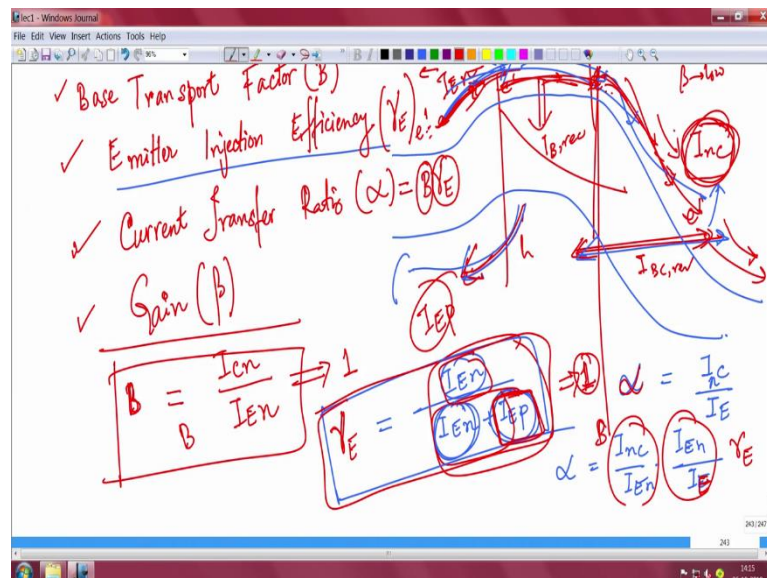 lec1 - Windows Journal
File Edit View Insert Actions Tools Help
✓ Base Transport Factor (B)
✓ Emitter Injection Efficiency (γE)
✓ Current Transfer Ratio (α) = B γE
✓ Gain (β)
B = ICn / IEn ⇒ 1
B
γE = IEn / (IEn + IEP) ⇒ 1
α = InC / IE
α = (Inc / IEn) (IEn / IE) γE
B
IEn
IB,rec
B→low
Inc
h
IEP
IBC,rev
243/247
243
14:15